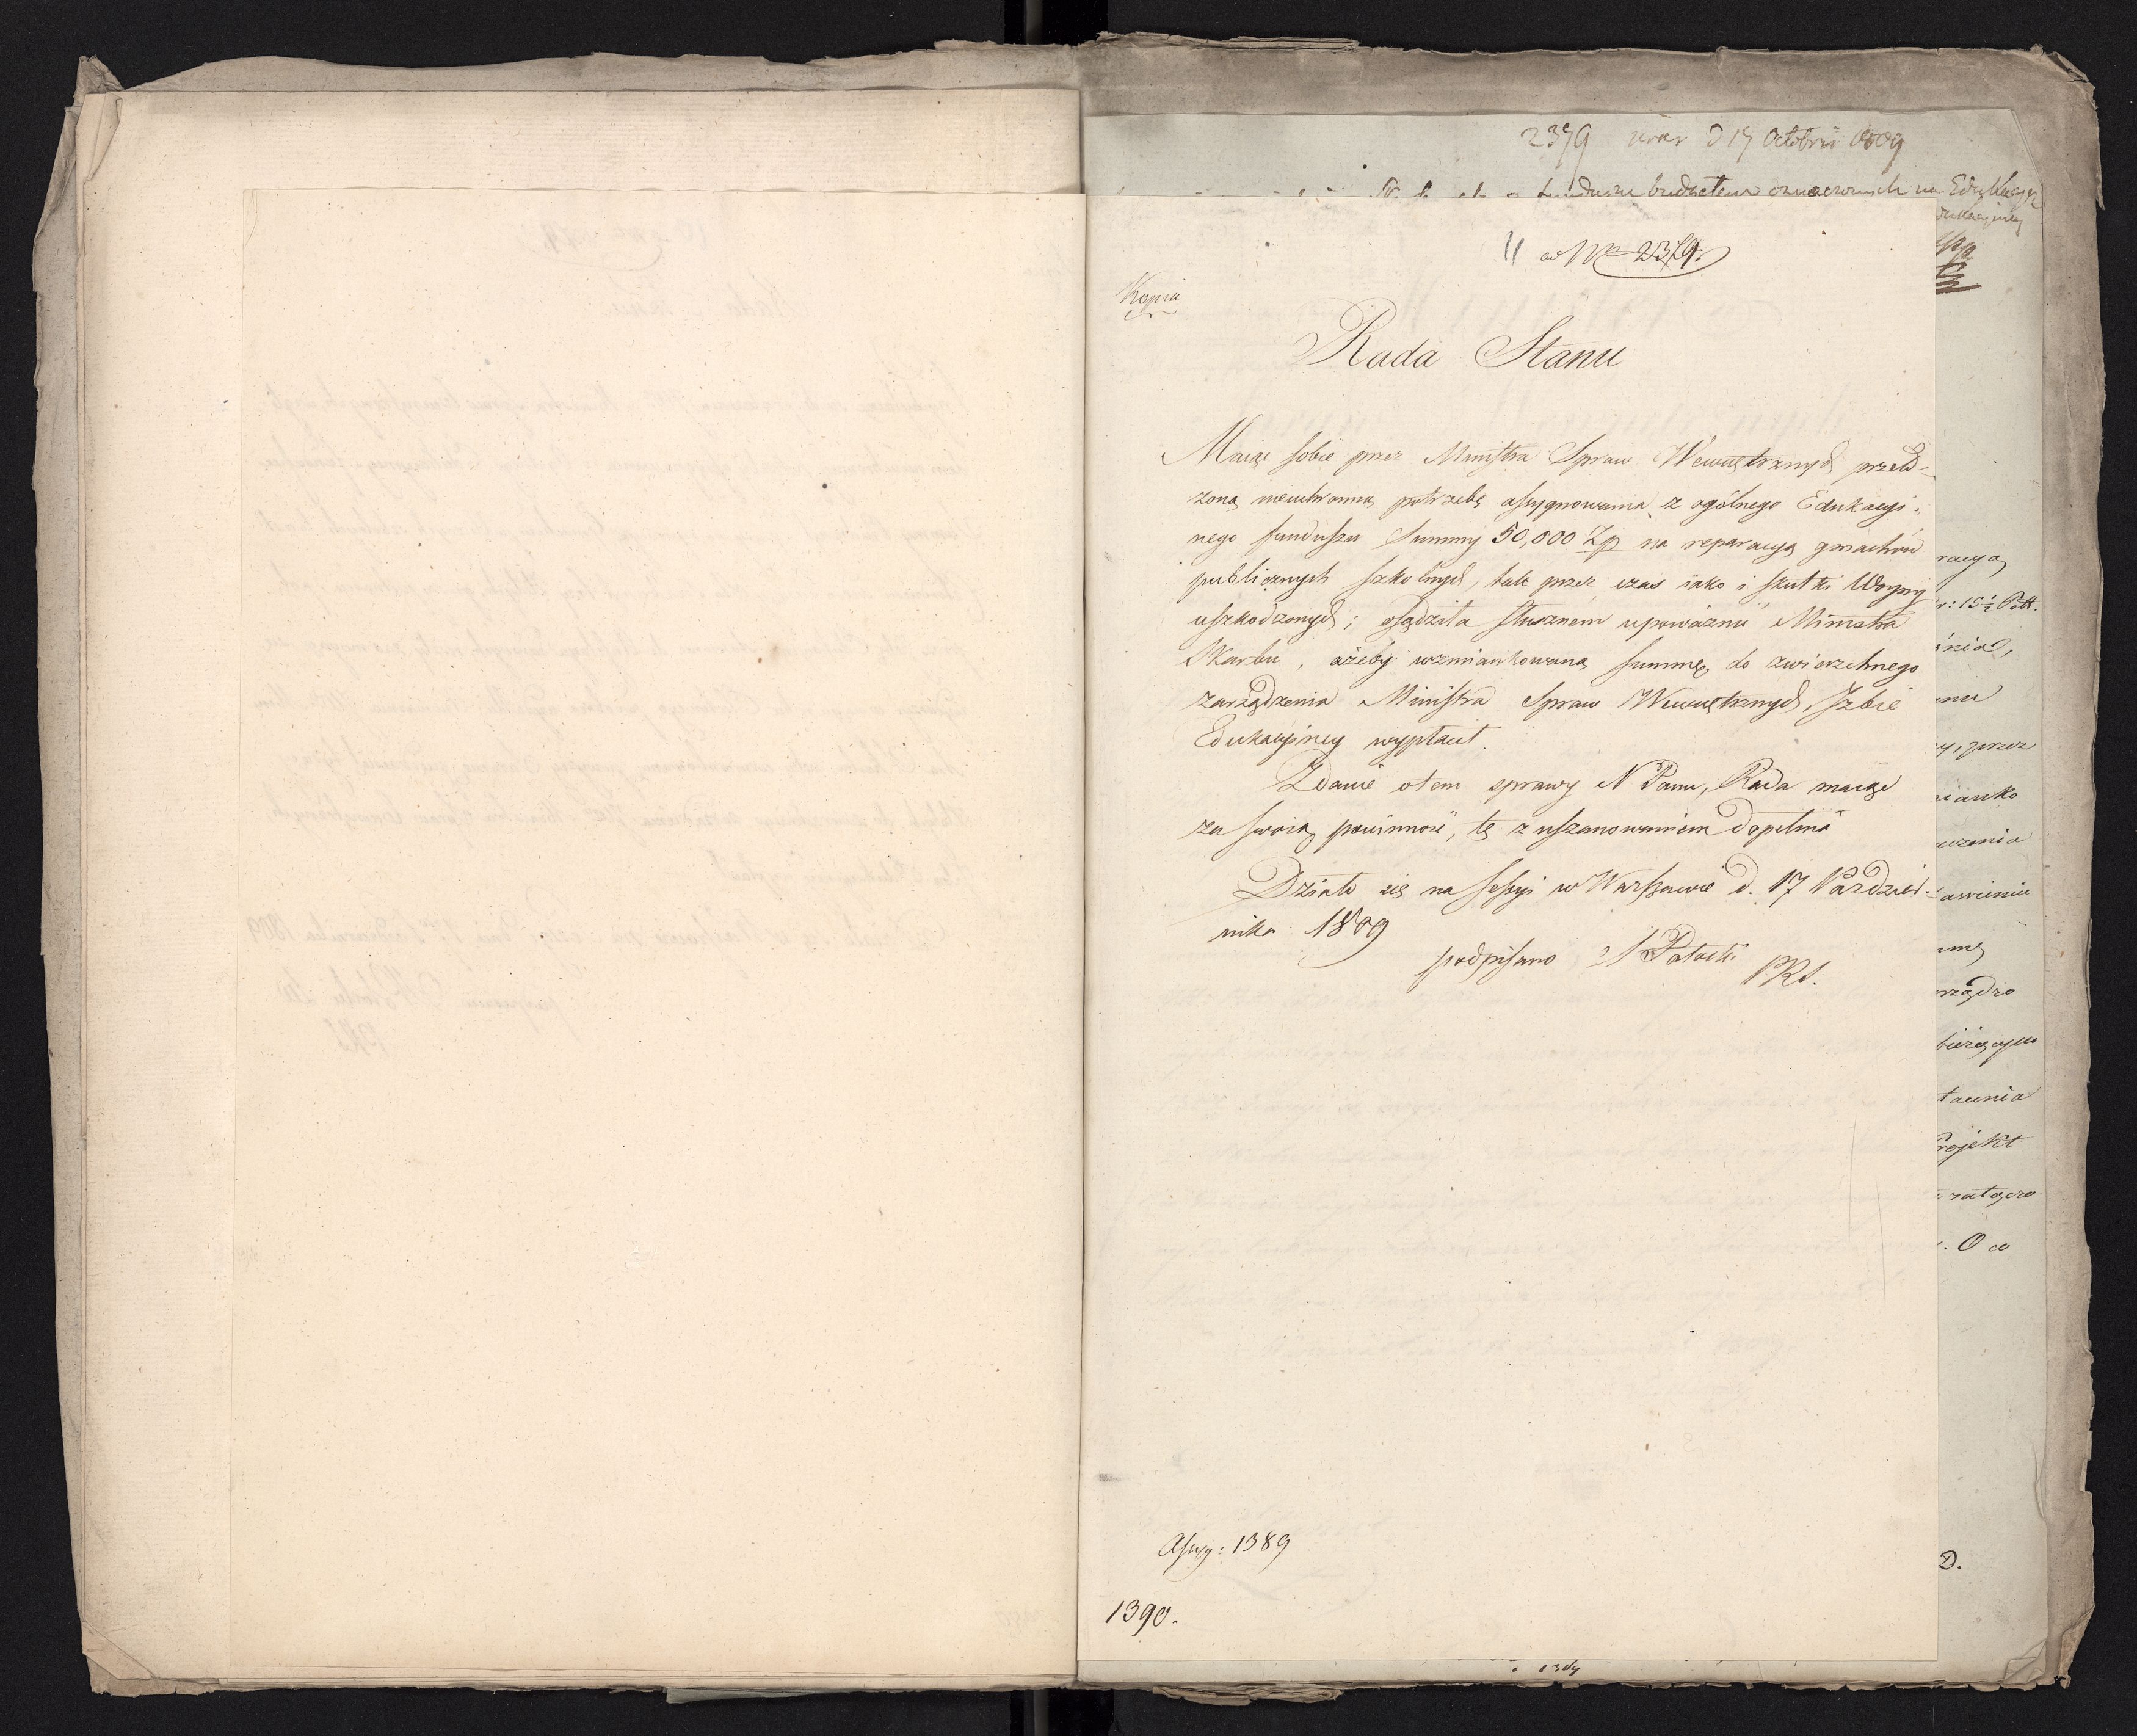 2379 d 17 Octobris 1809
funduszu budżetem oznaczonych na Edukacyą
11 ad Nrm 2379.
Kopia
Rada Stanu
Maiąc sobie przez Ministra Spraw Wewnętrznych przeło-
żoną nieuchronną potrzebę assygnowania z ogólnego Edukacyi-
nego funduszu summy 50,000 Zp na reparacyą gmachów
publicznych szkolnych, tak przez czas iako i skutki Woyny
uszkodzonych; osądziła słusznem upoważnić Ministra
Skarbu, ażeby wzmiankowaną summę, do zwierzchnego
zarządzenia Ministra Spraw Wewnętrznych, Izbie
Edukacyiney wypłacił.
Zdanie o tem sprawy N Panu, Rada maiąc
za swoią powinność, tę z uszanowaniem dopełnia
Działo się na Sessyi w Warszawie d. 17 Paździer-
nika 1809
podpisano S Potocki
PRS.
racyą
r: 15 1/2 Pott.
ania,
y, przez
ianko
czenia
awienie
mę
rządzo
bieżącym
tacenia
Projekt
załączo
. O co
D.
Assyg: 1389
1390.